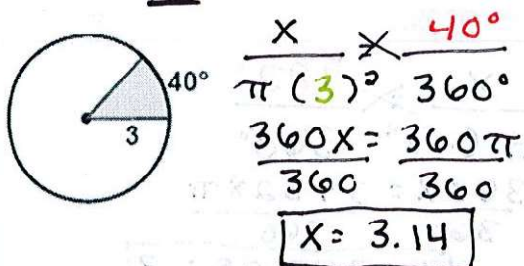 40°
3
x / π (3)² = 40° / 360°
360x = 360π
360 360
x = 3.14